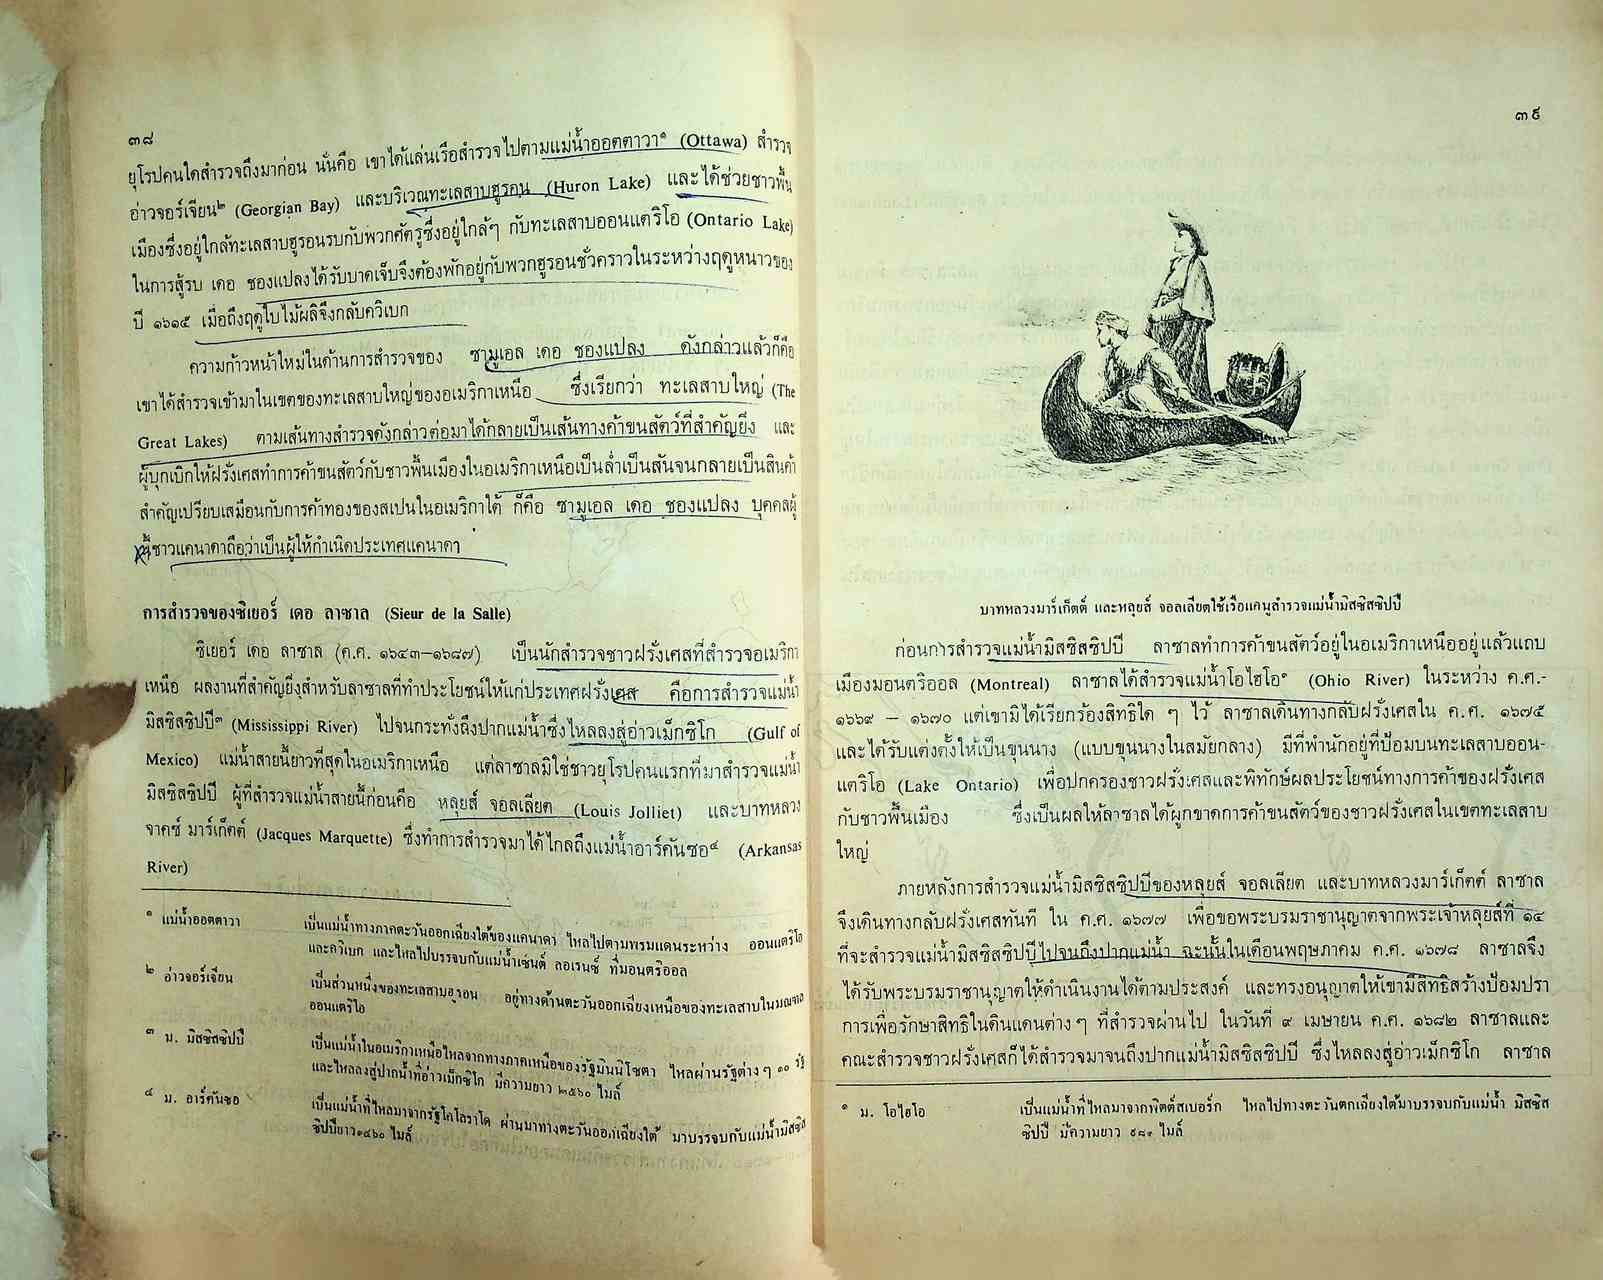 ๓๘
ยุโรปคนใดสำรวจถึงมาก่อน นั่นคือ เขาได้แล่นเรือสำรวจไปตามแม่น้ำออตตาวา๑ (Ottawa) สำรวจ
อ่าวจอร์เจียน๒ (Georgian Bay) และบริเวณทะเลสาบฮูรอน (Huron Lake) และได้ช่วยชาวพื้น
เมืองซึ่งอยู่ใกล้ทะเลสาบฮูรอนรบกับพวกศัตรูซึ่งอยู่ใกล้ๆ กับทะเลสาบออนแตริโอ (Ontario Lake)
ในการสู้รบ เดอ ชองแปลงได้รับบาดเจ็บจึงต้องพักอยู่กับพวกฮูรอนชั่วคราวในระหว่างฤดูหนาวของ
ปี ๑๖๑๕ เมื่อถึงฤดูใบไม้ผลิจึงกลับควิเบก
ความก้าวหน้าใหม่ในด้านการสำรวจของ ซามูเอล เดอ ชองแปลง ดังกล่าวแล้วก็คือ
เขาได้สำรวจเข้ามาในเขตของทะเลสาบใหญ่ของอเมริกาเหนือ ซึ่งเรียกว่า ทะเลสาบใหญ่ (The
Great Lakes) ตามเส้นทางสำรวจดังกล่าวต่อมาได้กลายเป็นเส้นทางค้าขนสัตว์ที่สำคัญยิ่ง และ
ผู้บุกเบิกให้ฝรั่งเศสทำการค้าขนสัตว์กับชาวพื้นเมืองในอเมริกาเหนือเป็นล่ำเป็นสันจนกลายเป็นสินค้า
สำคัญเปรียบเสมือนกับการค้าทองของสเปนในอเมริกาใต้ ก็คือ ซามูเอล เดอ ชองแปลง บุคคลผู้
นี้ชาวแคนาดาถือว่าเป็นผู้ให้กำเนิดประเทศแคนาดา
การสำรวจของซิเยอร์ เดอ ลาซาล (Sieur de la Salle)
ซิเยอร์ เดอ ลาซาล (ค.ศ. ๑๖๔๓—๑๖๘๗) เป็นนักสำรวจชาวฝรั่งเศสที่สำรวจอเมริกา
เหนือ ผลงานที่สำคัญยิ่งสำหรับลาซาลที่ทำประโยชน์ให้แก่ประเทศฝรั่งเศส คือการสำรวจแม่น้ำ
มิสซิสซิปปี๓ (Mississippi River) ไปจนกระทั่งถึงปากแม่น้ำซึ่งไหลลงสู่อ่าวเม็กซิโก (Gulf of
Mexico) แม่น้ำสายนี้ยาวที่สุดในอเมริกาเหนือ แต่ลาซาลมิใช่ชาวยุโรปคนแรกที่มาสำรวจแม่น้ำ
มิสซิสซิปปี ผู้ที่สำรวจแม่น้ำสายนี้ก่อนคือ หลุยส์ จอลเลียต (Louis Jolliet) และบาทหลวง
จาคซ์ มาร์เก็ตต์ (Jacques Marquette) ซึ่งทำการสำรวจมาได้ไกลถึงแม่น้ำอาร์คันซอ๔ (Arkansas
River)
๑ แม่น้ำออตตาวา เป็นแม่น้ำทางภาคตะวันออกเฉียงใต้ของแคนาดา ไหลไปตามพรมแดนระหว่าง ออนแตริโอ
และควิเบก และไหลไปบรรจบกับแม่น้ำเซนต์ ลอเรนซ์ ที่มอนตริออล
๒ อ่าวจอร์เจียน เป็นส่วนหนึ่งของทะเลสาบฮูรอน อยู่ทางด้านตะวันออกเฉียงเหนือของทะเลสาบในมณฑล
ออนแตริโอ
๓ ม. มิสซิสซิปปี เป็นแม่น้ำในอเมริกาเหนือไหลจากทางภาคเหนือของรัฐมินนิโซตา ไหลผ่านรัฐต่างๆ ๑๐ รัฐ
และไหลลงสู่ปากน้ำที่อ่าวเม็กซิโก มีความยาว ๒๕๖๐ ไมล์
๔ ม. อาร์คันซอ เป็นแม่น้ำที่ไหลมาจากรัฐโคโลราโด ผ่านมาทางตะวันออกเฉียงใต้ มาบรรจบกับแม่น้ำมิสซิส
ซิปปียาว๑๔๖๐ ไมล์
๓๙
บาทหลวงมาร์เก็ตต์ และหลุยส์ จอลเลียตใช้เรือแคนูสำรวจแม่น้ำมิสซิสซิปปี
ก่อนการสำรวจแม่น้ำมิสซิสซิปปี ลาซาลทำการค้าขนสัตว์อยู่ในอเมริกาเหนืออยู่แล้วแถบ
เมืองมอนตริออล (Montreal) ลาซาลได้สำรวจแม่น้ำโอไฮโอ๑ (Ohio River) ในระหว่าง ค.ศ.-
๑๖๖๙ — ๑๖๗๐ แต่เขามิได้เรียกร้องสิทธิใด ๆ ไว้ ลาซาลเดินทางกลับฝรั่งเศสใน ค.ศ. ๑๖๗๕
และได้รับแต่งตั้งให้เป็นขุนนาง (แบบขุนนางในสมัยกลาง) มีที่พำนักอยู่ที่ป้อมบนทะเลสาบออน-
แตริโอ (Lake Ontario) เพื่อปกครองชาวฝรั่งเศสและพิทักษ์ผลประโยชน์ทางการค้าของฝรั่งเศส
กับชาวพื้นเมือง ซึ่งเป็นผลให้ลาซาลได้ผูกขาดการค้าขนสัตว์ของชาวฝรั่งเศสในเขตทะเลสาบ
ใหญ่
ภายหลังการสำรวจแม่น้ำมิสซิสซิปปีของหลุยส์ จอลเลียต และบาทหลวงมาร์เก็ตต์ ลาซาล
จึงเดินทางกลับฝรั่งเศสทันที ใน ค.ศ. ๑๖๗๗ เพื่อขอพระบรมราชานุญาตจากพระเจ้าหลุยส์ที่ ๑๔
ที่จะสำรวจแม่น้ำมิสซิสซิปปีไปจนถึงปากแม่น้ำ ฉะนั้นในเดือนพฤษภาคม ค.ศ. ๑๖๗๘ ลาซาลจึง
ได้รับพระบรมราชานุญาตให้ดำเนินงานได้ตามประสงค์ และทรงอนุญาตให้เขามีสิทธิสร้างป้อมปรา
การเพื่อรักษาสิทธิในดินแดนต่างๆ ที่สำรวจผ่านไป ในวันที่ ๙ เมษายน ค.ศ. ๑๖๘๒ ลาซาลและ
คณะสำรวจชาวฝรั่งเศสก็ได้สำรวจมาจนถึงปากแม่น้ำมิสซิสซิปปี ซึ่งไหลลงสู่อ่าวเม็กซิโก ลาซาล
๑ ม. โอไฮโอ เป็นแม่น้ำที่ไหลมาจากพิตต์สเบอร์ก ไหลไปทางตะวันตกเฉียงใต้มาบรรจบกับแม่น้ำ มิสซิส
ซิปปี มีความยาว ๙๘๑ ไมล์